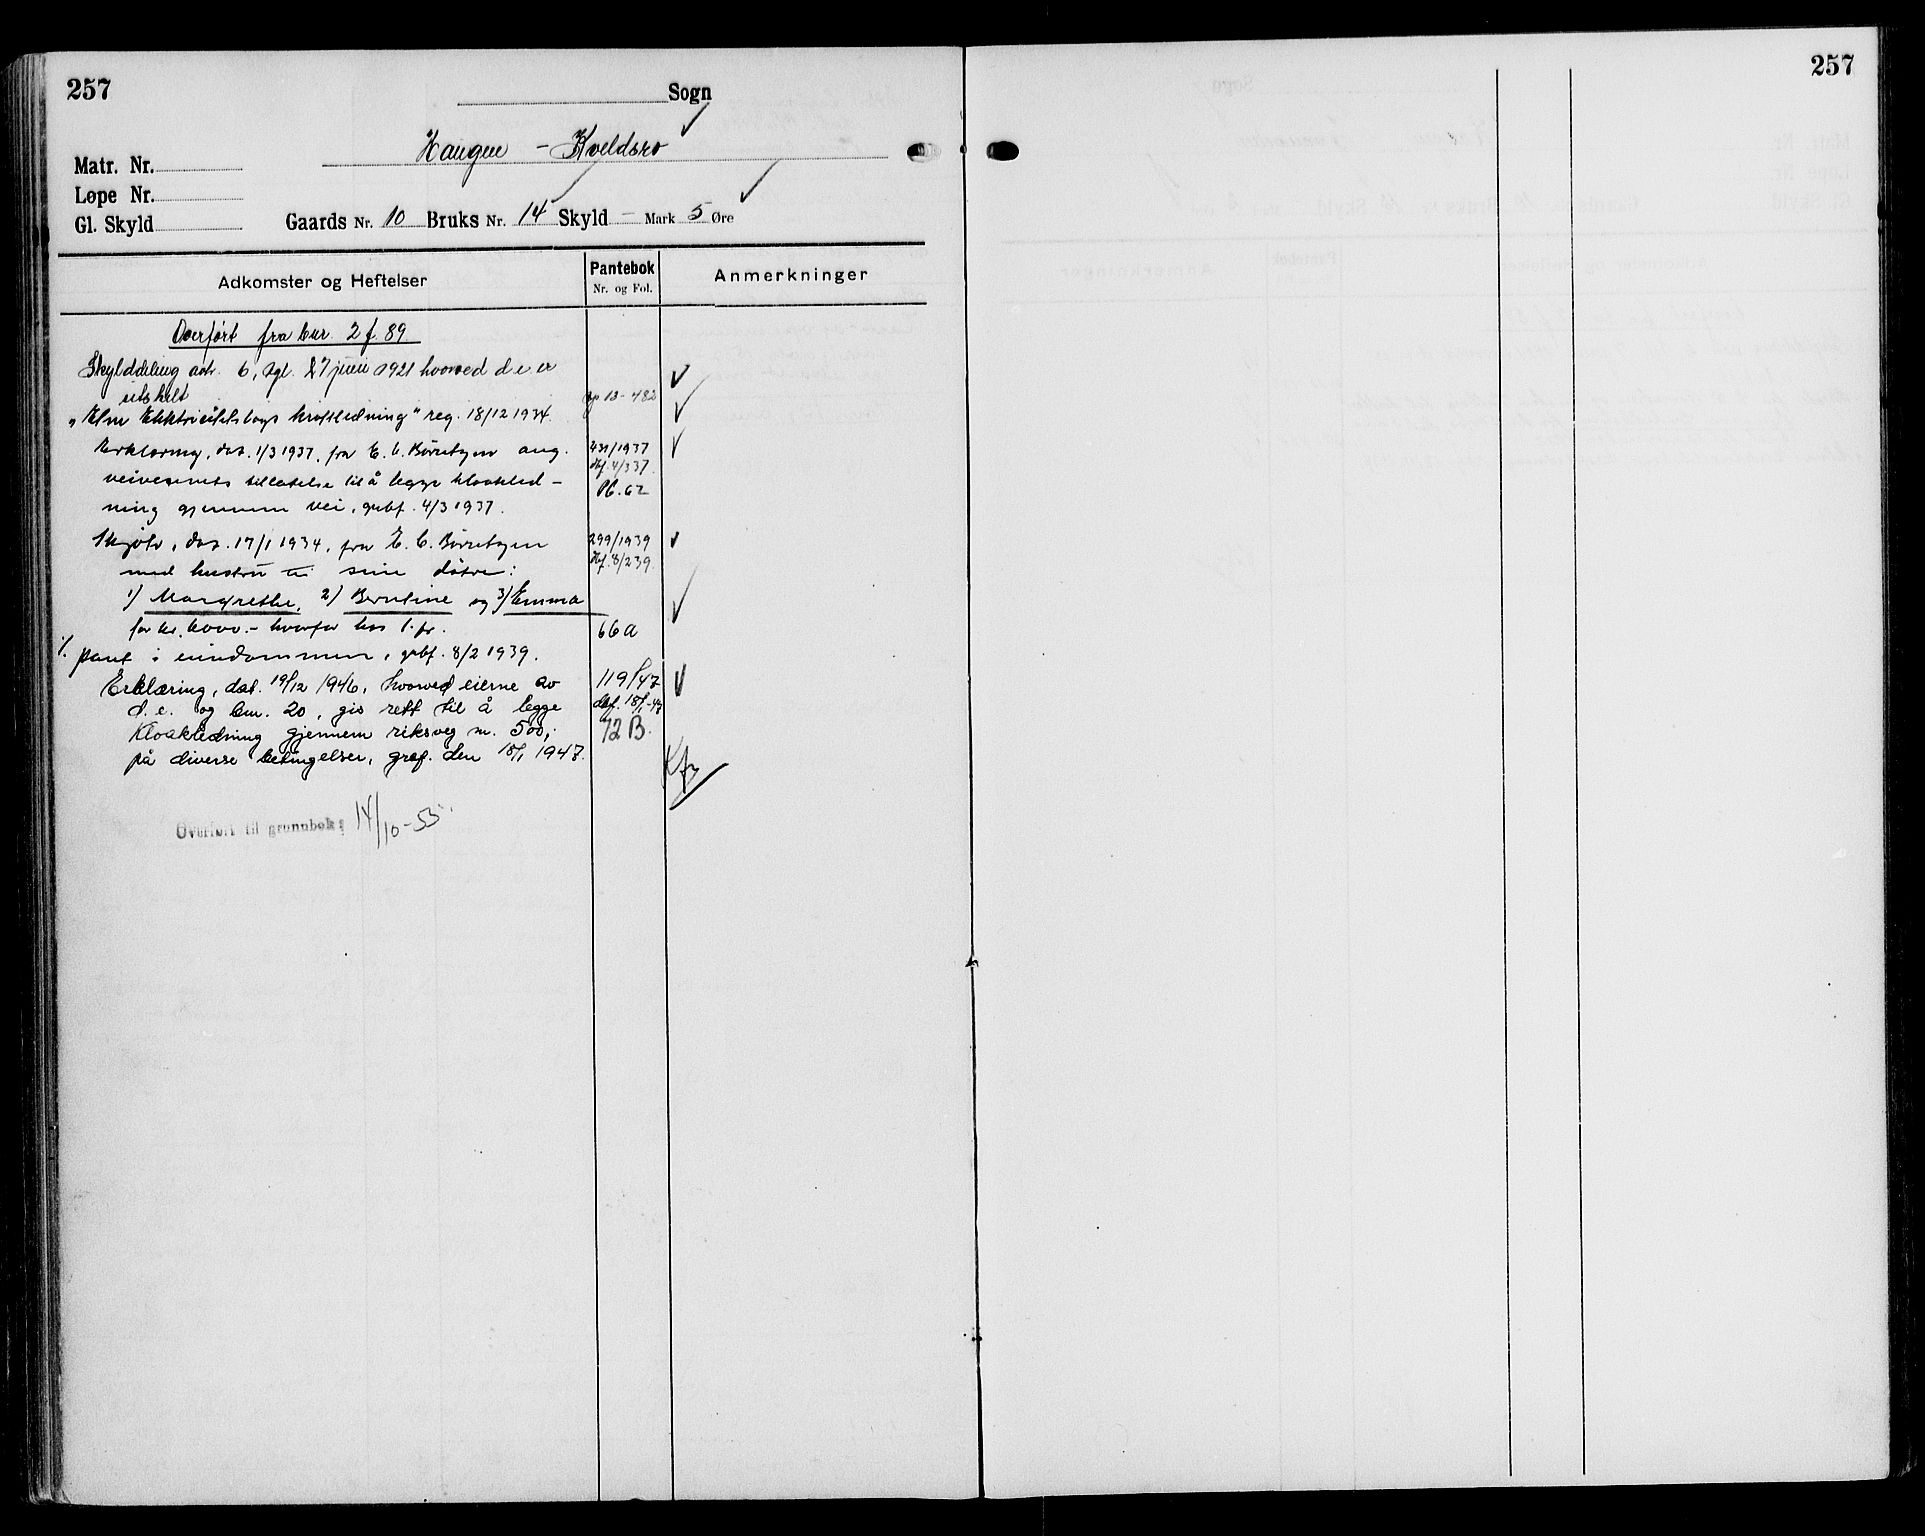 257
Sogn
Haugen - Kveldsro
Matr. Nr.
Løpe Nr.
Gl. Skyld
Gaards Nr. 10 Bruks Nr. 14 Skyld - Mark 5 Øre
Adkomster og Heftelser
Pantebok
Nr. og Fol.
Anmerkninger
Overført fra bnr. 2 f. 89
Skylddeling avh. 6, tgl. 27 juni 1921 hvorved d.e. er
utskilt
13-482
" Elektricitetslags kraftledning" reg. 18/12 1934.
Erklæring, dat. 1/3 1937, fra E. C. ang.
431/1937
Dbf. 4/337.
veivesenets tillatelse til å legge kloakled-
Pb. 62
ning gjennem vei, grbf. 4/3 1937.
Skjøte, dat. 17/1 1934, fra E. C.
299/1939
Dbf. 8/239.
med hustru til sine døtre:
1) Margrethe, 2) Berntine og 3) Emma
for kr. 6000.- hvorfor has 1. pr.
66a
%. pant i eiendommen, grbf. 8/2 1939.
Erklæring, dat. 19/12 1946, hvorved eierne av
119/47
d.e. og bnr. 20, gis rett til å legge
dbf. 18/1-47
Kloakledning gjennem riksveg nr. 500,
72 B.
på diverse betingelser, grbf. den 18/1 1947.
Overført til grunnbok: 14/10-55
257